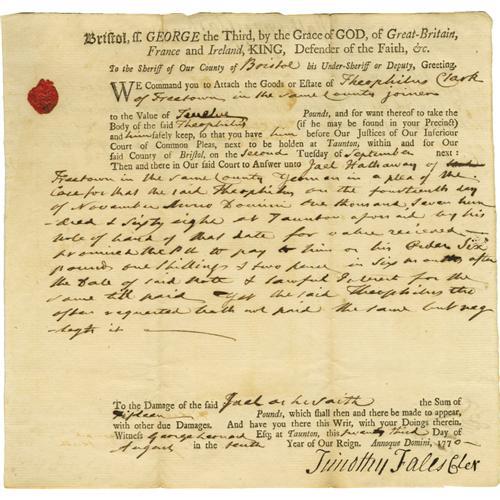 Bristol, ss. GEORGE the Third, by the Grace of GOD, of Great-Britain,
France and Ireland, KING, Defender of the Faith, &c.
To the Sheriff of Our County of Bristol his Under-Sheriff or Deputy, Greeting.
WE Command you to Attach the Goods or Estate of Theophilus Clark
of Freetown in the same County joiner
to the Value of Twelve Pounds, and for want thereof to take the
Body of the said Theophilus (if he may be found in your Precinct)
and him safely keep, so that you have him before Our Justices of Our Inferiour
Court of Common Pleas, next to be holden at Taunton, within and for Our
said County of Bristol, on the Second Tuesday of September next:
Then and there in Our said Court to Answer unto Jael Hathaway of
Freetown in the same County Yeoman in a plea of the
Case for that the said Theophilus on the fourteenth day
of November Anno Domini one thousand Seven hun
dred & Sixty eight at Taunton aforesaid by his
Note of hand of that date for value received
promised the Plt to pay to him or his Order Six
pounds one shillings & two pence in Six months after
the Date of said Note & lawful Interest for the
same till paid Yet the said Theophilus tho
often requested hath not paid the same but neg
lects it
To the Damage of the said Jael as he saith the Sum of
fifteen Pounds, which shall then and there be made to appear,
with other due Damages. And have you there this Writ, with your Doings therein.
Witness George Leonard Esq; at Taunton, this twenty third Day of
August in the tenth Year of Our Reign. Annoque Domini, 1770
Timothy Fales Cler